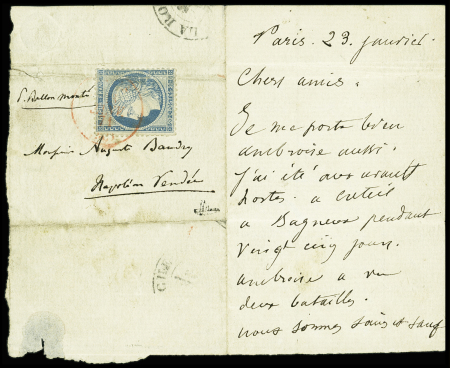 LA RO
P. Ballon monté
Monsieur Auguste Baudry
Napoléon Vendée
Paris. 23 janvier.
Chers amis.
Je me porte bien
ambroise aussi.
j'ai été aux avant
postes a Creteil
a Bagneux pendant
vingt cinq jours.
ambroise a vu
deux batailles.
nous sommes sains et sauf